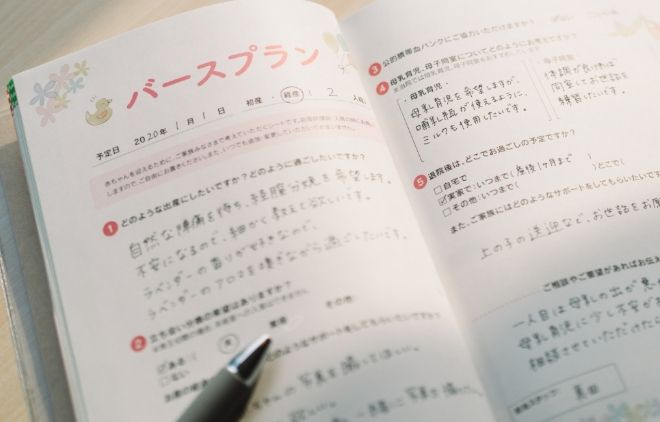 バースプラン
予定日 2020年 1月 1日 初産・経産： 2 人目
赤ちゃんを迎えるために、ご家族みなさまで考えていただくシートです。
1 どのような出産にしたいですか？どのように過ごしたいですか？
自然な陣痛を待ち、経腟分娩を希望します。
不安になるので、細かく教えて欲しいです。
ラベンダーの香りが好きなので、
ラベンダーのアロマを嗅ぎながら過ごしたいです。
2 立ち会い分娩の希望はありますか？
ある：（ 夫 その他：
ない
のようなサポートをしてもらいたいですか？
の写真を撮ってほしい。
3 公的臍帯血バンクにご協力いただけますか？
4 母乳育児、母子同室についてどのようにお考えですか？
・母乳育児・
母乳育児を希望しますが、
哺乳瓶が使えるように、
ミルクも使用したいです。
母子同室
体調が良ければ
同室してお世話を
練習したいです。
5 退院後は、どこでお過ごしの予定ですか？
自宅で
実家で：いつまで（ 産後1ヶ月まで ）
その他：いつまで（ ）どこで（
また、ご家族にはどのようなサポートをしてもらいたいです
上の子の送迎など、お世話をお願
ご相談やご要望があればお伝え
一人目は母乳の出が悪
母乳育児に少し不安が
相談させていただけたら